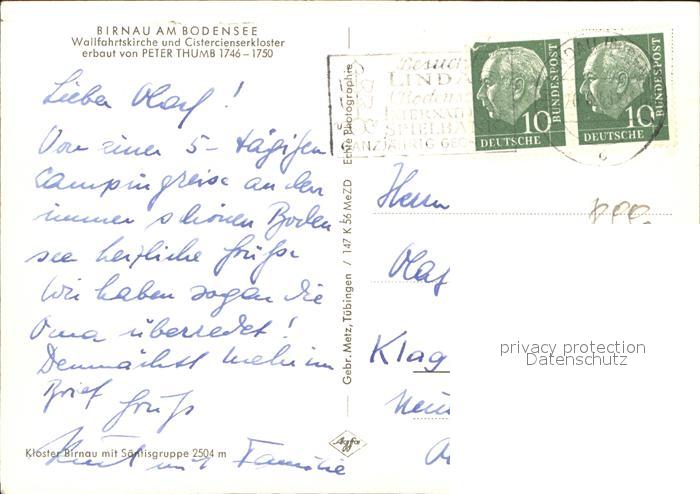 BIRNAU AM BODENSEE
Wallfahrtskirche und Cistercienserkloster
erbaut von PETER THUMB 1746–1750
Lieber Olaf!
Von einer 5-tägigen
Campingreise an den
immer schönen Boden
see herzliche Grüße
Wir haben sogar die
Oma überredet!
Demnächst mehr im
Brief Gruß
Kurt und Familie
Kloster Birnau mit Säntisgruppe 2504 m
Gebr. Metz, Tübingen / 147 K 56 MeZD Echte Photographie
Agfa
Besuch
LINDA
Bodens
INTERNAT
SPIELBA
GANZJÄHRIG GEÖ
10
DEUTSCHE
BUNDESPOST
10
DEUTSCHE
BUNDESPOST
c
Herrn
Olaf
Klag
privacy protection
Datenschutz